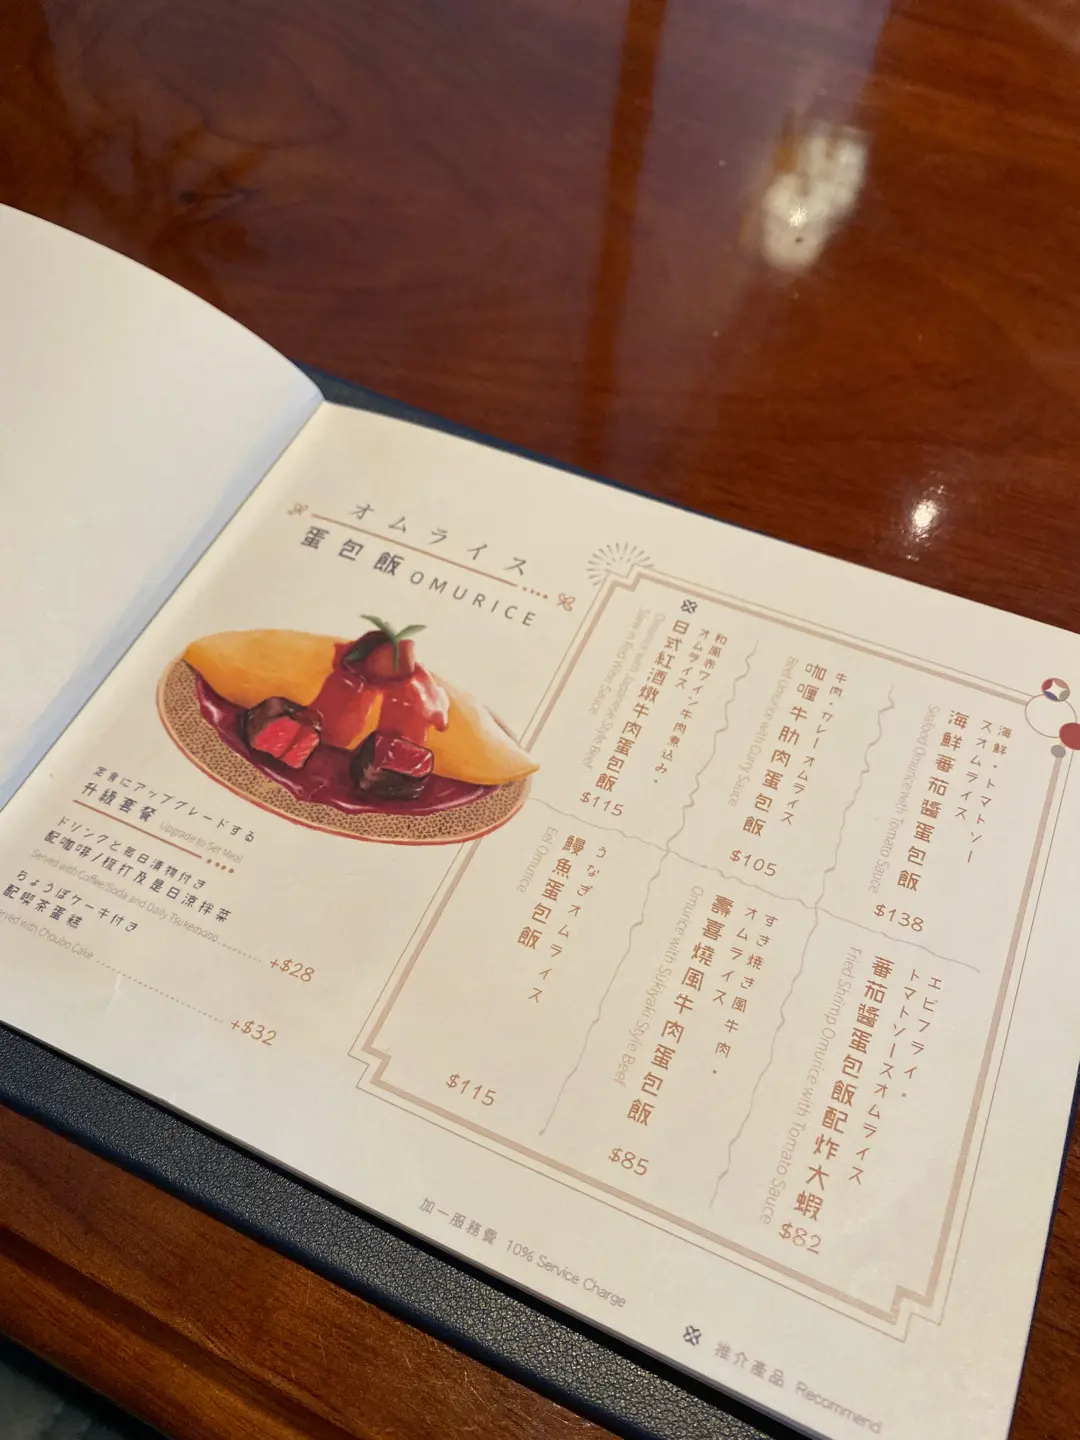 オムライス
蛋包飯 OMURICE
定食にアップグレードする
升級套餐 Upgrade to Set Meal
ドリンクと毎日漬物付き
配咖啡/梳打及是日涼拌菜
Served with Coffee/Soda and Daily Tsukemono
+$28
ちょうぼケーキ付き
配喫茶蛋糕
Served with Choubo Cake
+$32
海鮮・トマトソー
スオムライス
海鮮番茄醬蛋包飯
Seafood Omurice with Tomato Sauce
$138
牛肉・カレーオムライス
咖喱牛肋肉蛋包飯
Beef Omurice with Curry Sauce
$105
和風赤ワイン牛肉煮込み・
オムライス
日式紅酒燉牛肉蛋包飯
Omurice with Japanese Style Beef
Stew in Red Wine Sauce
$115
エビフライ・
トマトソースオムライス
蕃茄醬蛋包飯配炸大蝦
Fried Shrimp Omurice with Tomato Sauce
$82
すき焼き風牛肉・
オムライス
壽喜燒風牛肉蛋包飯
Omurice with Sukiyaki Style Beef
$85
うなぎオムライス
鰻魚蛋包飯
Eel Omurice
$115
加一服務費 10% Service Charge
推介產品 Recommend